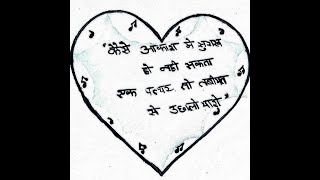 "कैसे आकाश में सुराख
हो नहीं सकता
एक पत्थर तो तबीयत
से उछालो यारो"